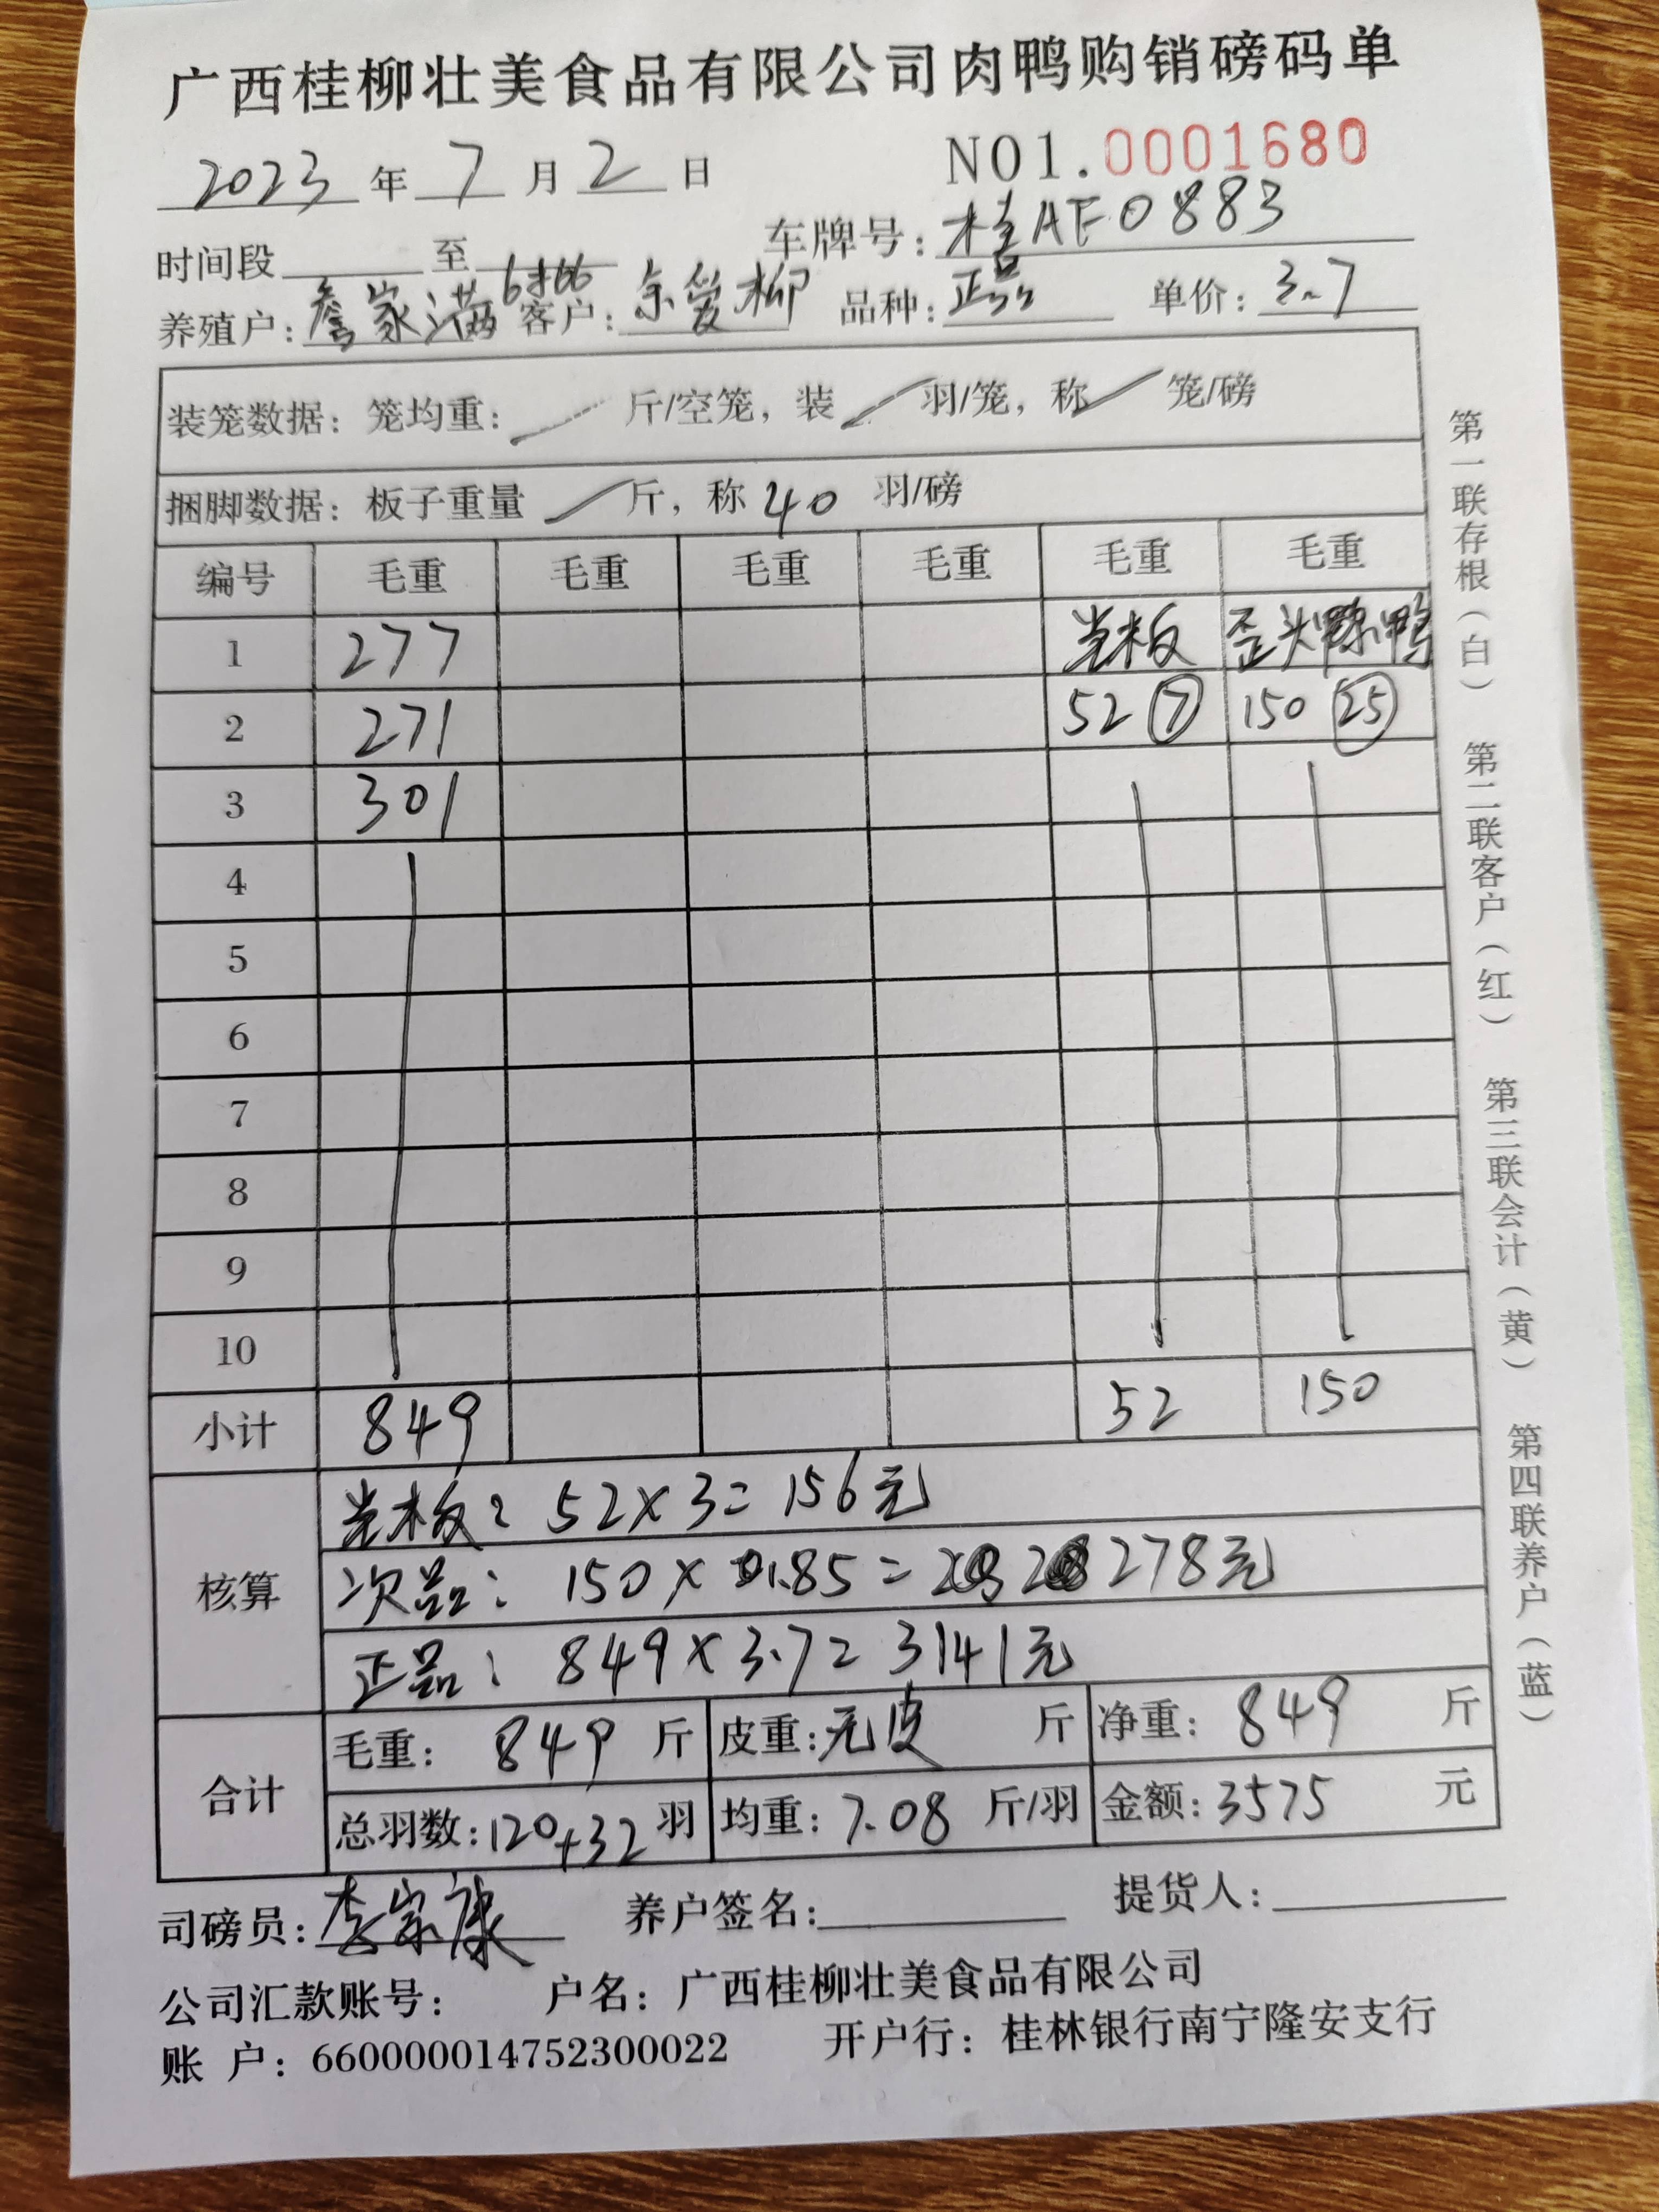 广西桂柳壮美食品有限公司肉鸭购销磅码单
2023年7月2日 NO1.0001680
时间段 至 车牌号：桂AF0883
养殖户：詹家满 客户：余爱柳 品种：正品 单价：3.7
装笼数据：笼均重： 斤/空笼，装 羽/笼，称 笼/磅
捆脚数据：板子重量 斤，称40羽/磅
编号 毛重 毛重 毛重 毛重 毛重 毛重
1 277 光板 歪头 鸭
2 271 52 ⑦ 150 ㉕
3 301
4
5
6
7
8
9
10
小计 849 52 150
核算
光板：52×3=156元
次品：150×1.85= 278元
正品：849×3.7=3141元
合计
毛重：849斤 皮重：无皮 斤 净重：849斤
总羽数：120+32羽 均重：7.08斤/羽 金额：3575元
司磅员：李家康 养户签名： 提货人：
公司汇款账号： 户名：广西桂柳壮美食品有限公司
账 户：660000014752300022 开户行：桂林银行南宁隆安支行
第一联存根（白） 第二联客户（红） 第三联会计（黄） 第四联养户（蓝）